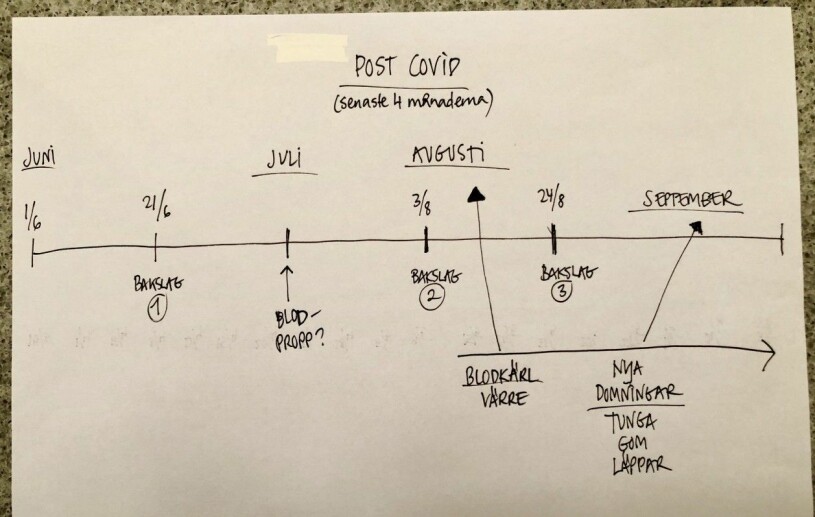 POST COVID
(senaste 4 månaderna)
JUNI
JULI
AUGUSTI
SEPTEMBER
1/6
21/6
3/8
24/8
BAKSLAG
1
BLOD-
PROPP?
BAKSLAG
2
BAKSLAG
3
BLODKÄRL
VÄRRE
NYA
DOMNINGAR
TUNGA
GOM
LÄPPAR